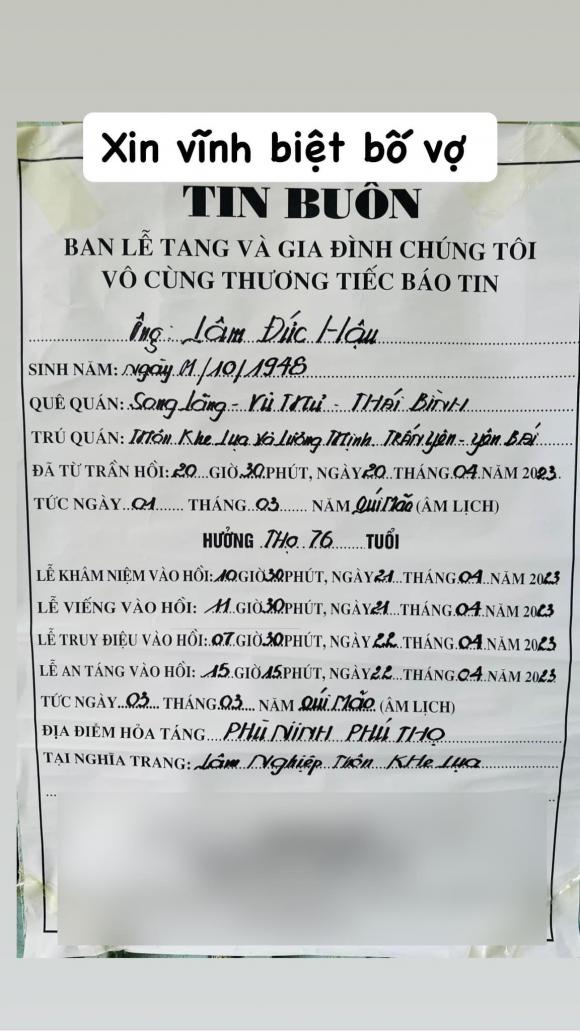 Xin vĩnh biệt bố vợ
TIN BUỒN
BAN LỄ TANG VÀ GIA ĐÌNH CHÚNG TÔI
VÔ CÙNG THƯƠNG TIẾC BÁO TIN
Ông: Lâm Đức Hậu
SINH NĂM: Ngày 11/10/1948
QUÊ QUÁN: Song Lãng - Vũ Thư - THÁI BÌNH
TRÚ QUÁN: Thôn Khe Lụa Xã Lương Thịnh TRẤN Yên - Yên BÁI
ĐÃ TỪ TRẦN HỒI: 20 GIỜ 30 PHÚT, NGÀY 20 THÁNG 04 NĂM 2023
TỨC NGÀY 01 THÁNG 03 NĂM QUÍ MÃO (ÂM LỊCH)
HƯỞNG THỌ 76 TUỔI
LỄ KHÂM NIỆM VÀO HỒI: 10 GIỜ 30 PHÚT, NGÀY 21 THÁNG 04 NĂM 2023
LỄ VIẾNG VÀO HỒI: 11 GIỜ 30 PHÚT, NGÀY 21 THÁNG 04 NĂM 2023
LỄ TRUY ĐIỆU VÀO HỒI: 07 GIỜ 30 PHÚT, NGÀY 22 THÁNG 04 NĂM 2023
LỄ AN TÁNG VÀO HỒI: 15 GIỜ 15 PHÚT, NGÀY 22 THÁNG 04 NĂM 2023
TỨC NGÀY 03 THÁNG 03 NĂM QUÍ MÃO (ÂM LỊCH)
ĐỊA ĐIỂM HỎA TÁNG PHÙ NINH PHÚ THỌ
TẠI NGHĨA TRANG: Lâm Nghiệp Thôn KHe Lụa